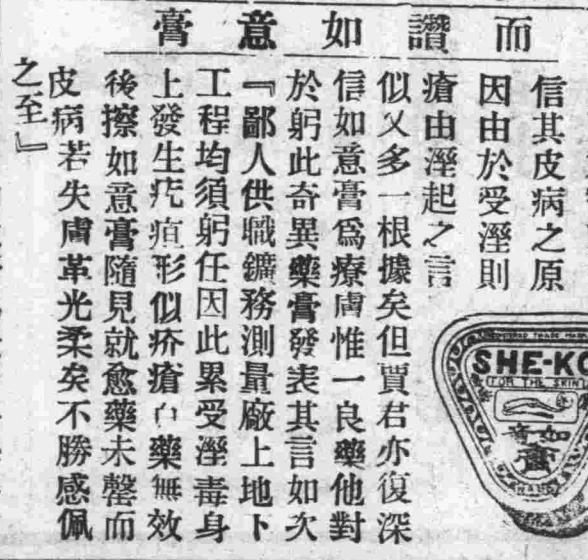 而讚如意膏
信其皮病之原
因由於受溼則
瘡由溼起之言
似又多一根據矣但賈君亦復深
信如意膏爲療膚惟一良藥他對
於躬此奇異藥膏發表其言如次
『鄙人供職鑛務測量廠上地下
工程均須躬任因此累受溼毒身
上發生疙疸形似疥瘡藥無效
後擦如意膏隨見就愈藥未罄而
皮病若失膚革光柔矣不勝感佩
之至』
TRADE
SHE-KO
FOR THE SKIN
如意
膏